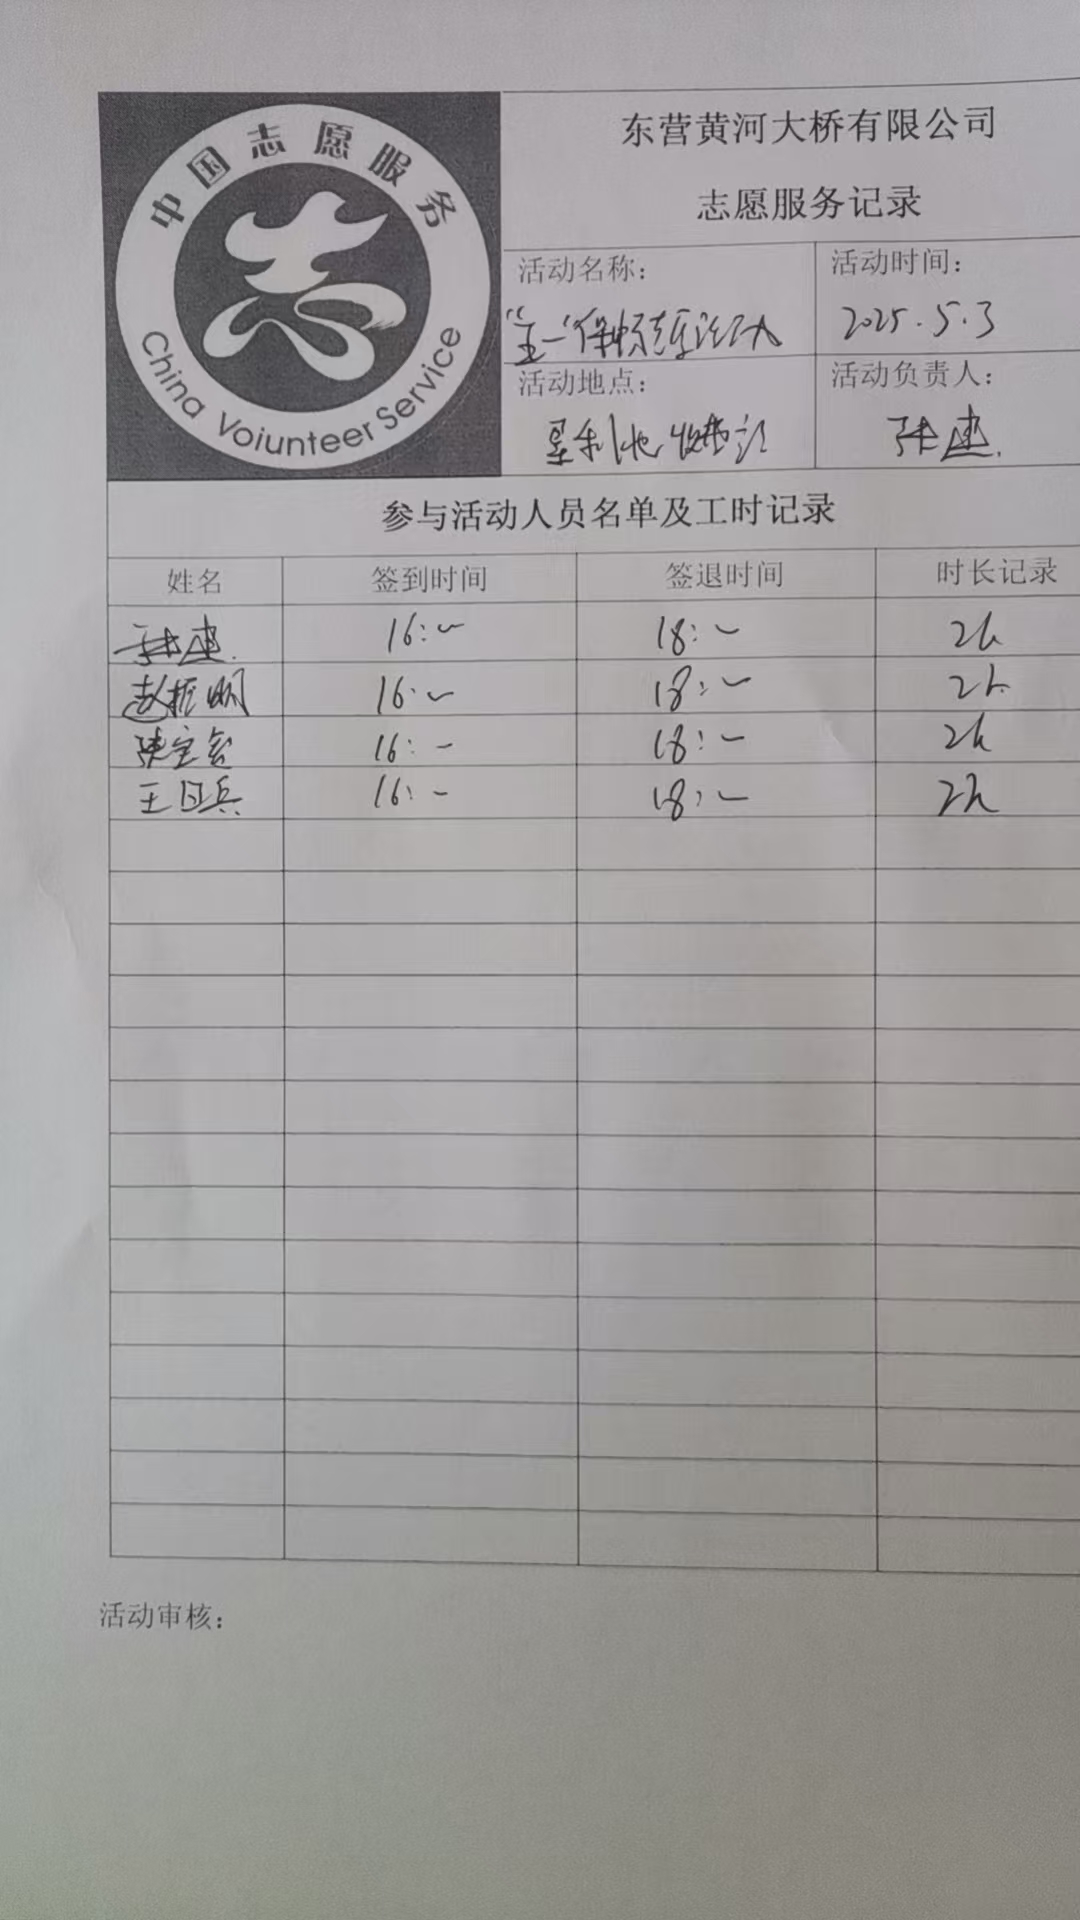 中国志愿服务
China Voiunteer Service
东营黄河大桥有限公司
志愿服务记录
活动名称:
活动时间:
"五一"保畅志愿活动
2025.5.3
活动地点:
活动负责人:
垦利北收费站
张建
参与活动人员名单及工时记录
姓名 签到时间 签退时间 时长记录
张建 16:~ 18:~ 2h
赵振明 16:~ 18:~ 2h
陈宝会 16:- 18:- 2h
王日兵 16:- 18:~ 2h
活动审核: